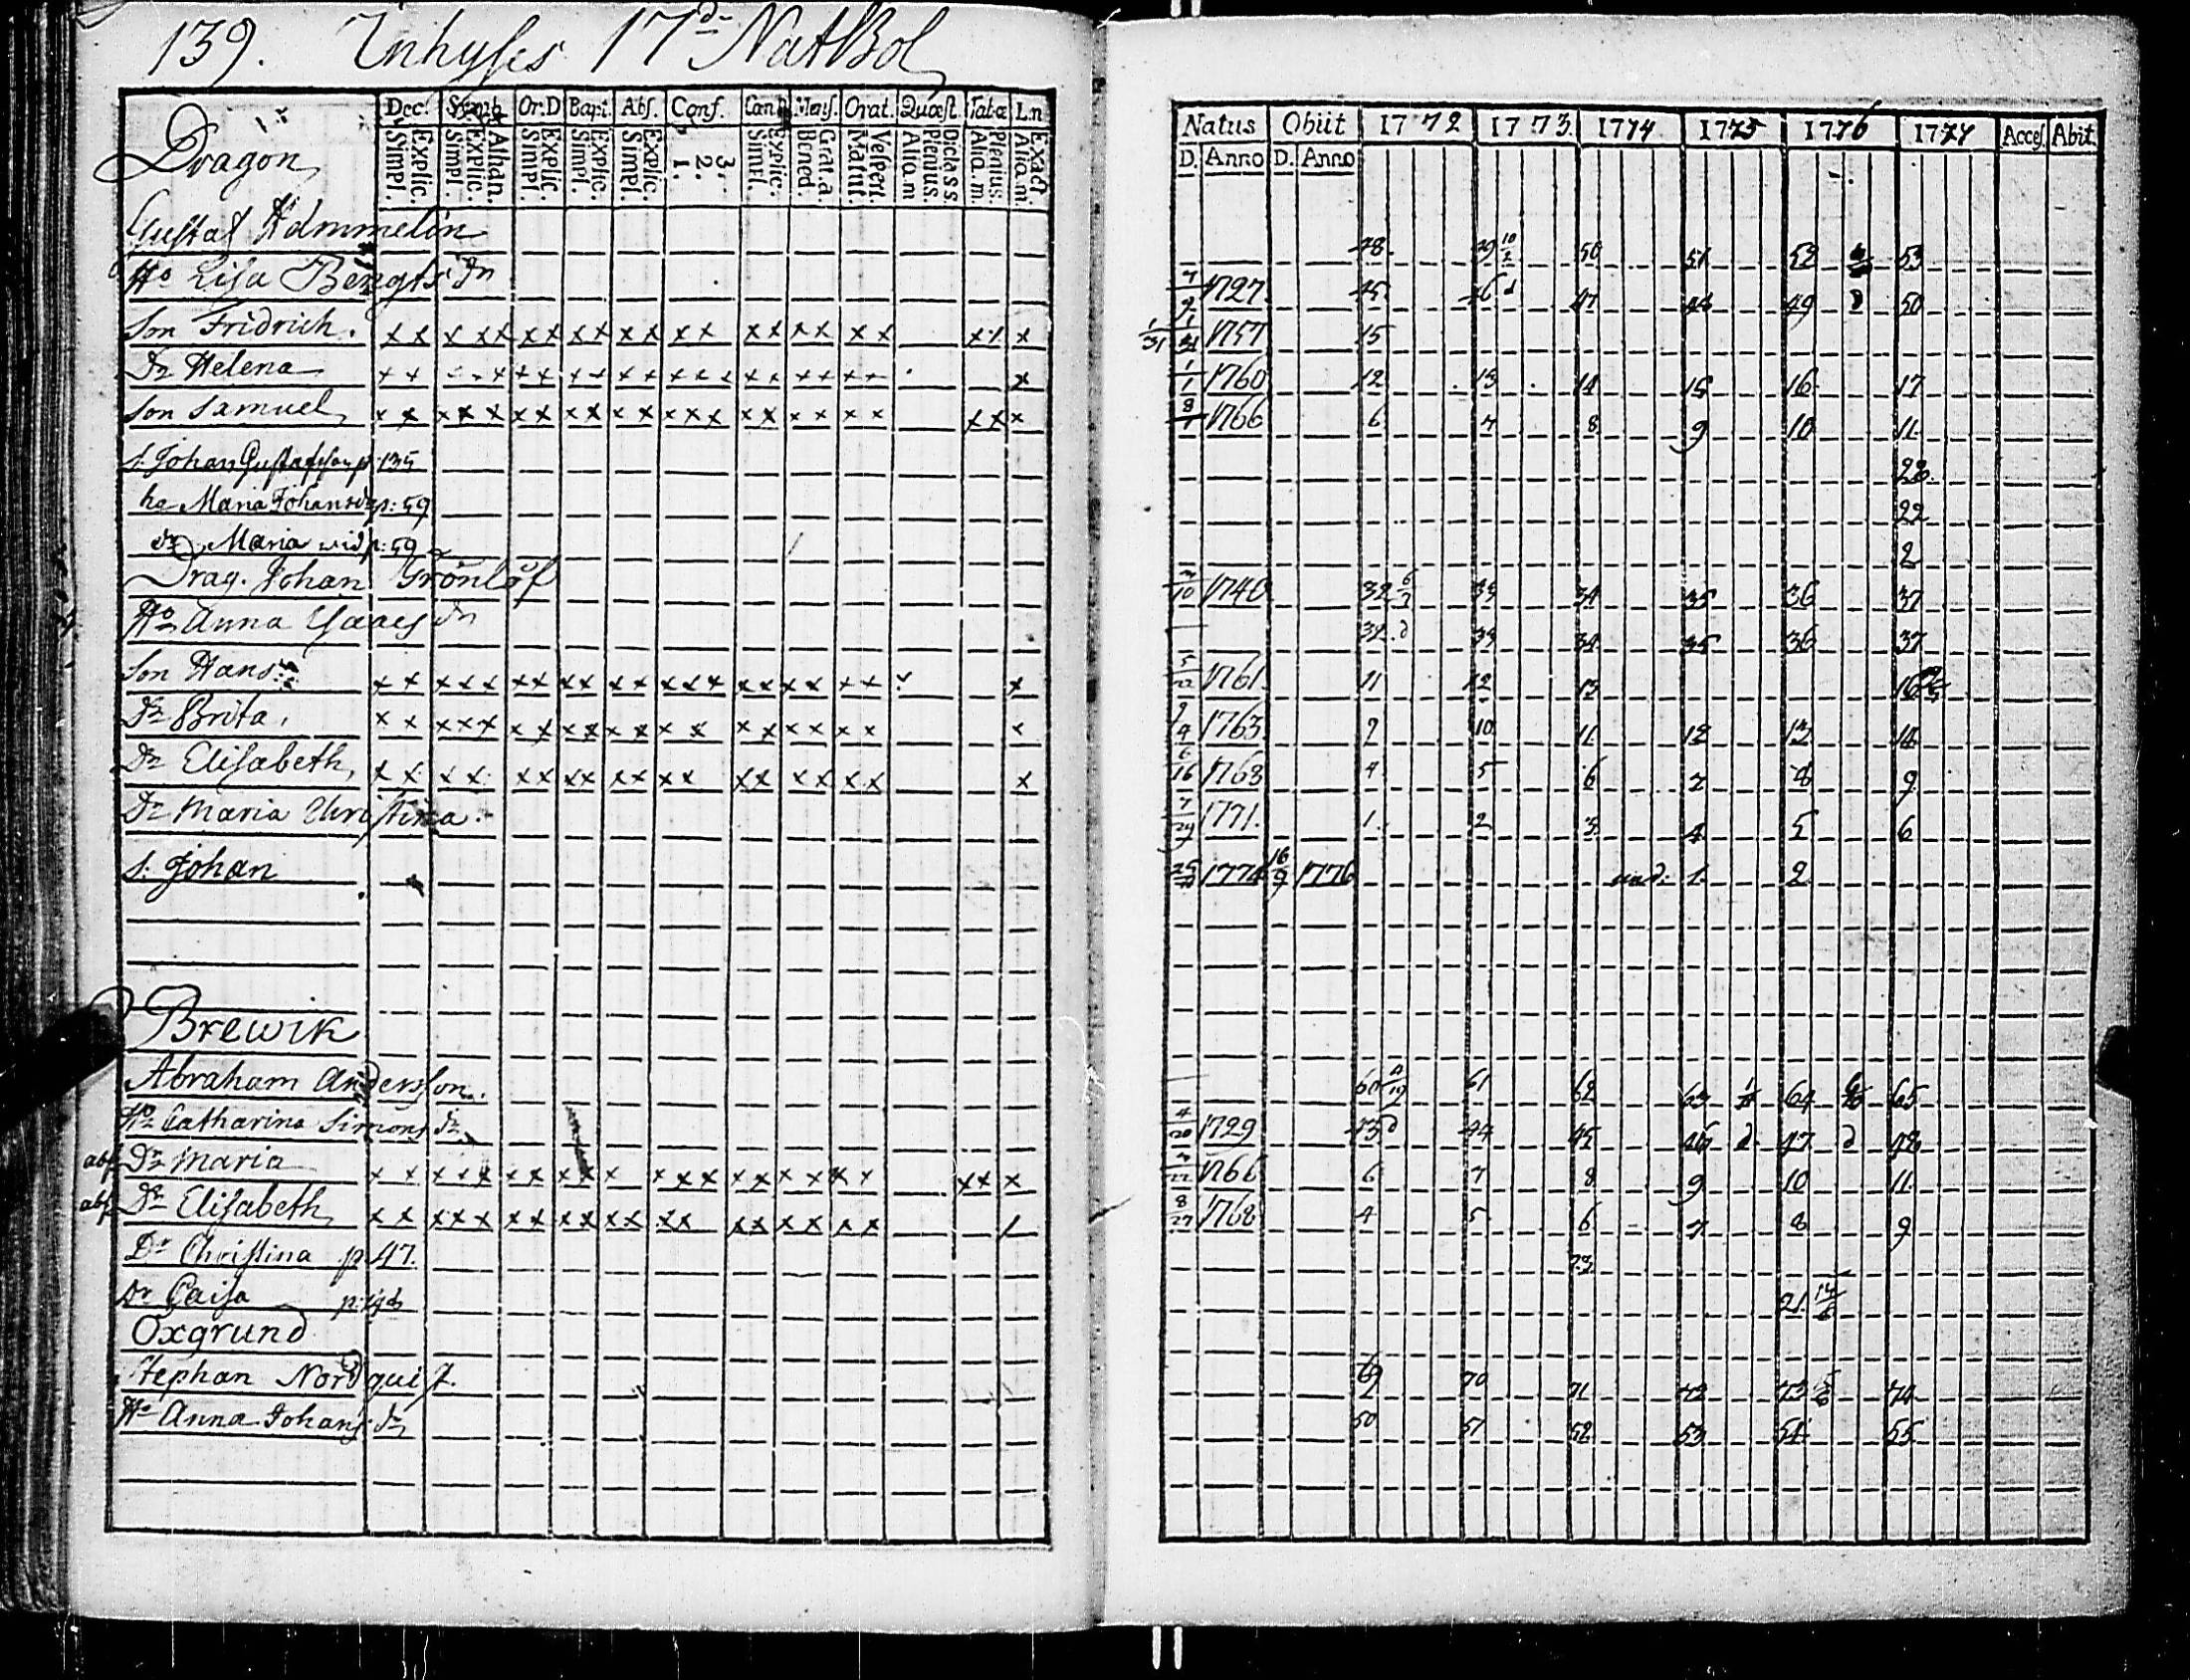 139. Inhyses 17de NattBol
Dec. Symb. Or.D Bapt. Abs. Conf. Can Mens. Orat. Quæst. Tabæ L.n
Simpl. Explic. Simpl. Explic. Athan. Simpl. Explic. Simpl. Explic. Simpl. Explic. 1. 2. 3. Simpl. Explic. Bened. Grat.a. Matut. Vespert. Alio.m Plenius. Dictass. Alia.m. Plenius. Alia.m. Exact
Natus Obiit 1772 1773. 1774 1775 1776 1777 Acces. Abit.
D. Anno D. Anno
Dragon
Gustaf Hammelin 48. 49 10/2 50 51 52 53
Ho Lisa Bengts dr 7/9 1727. 45 46 d 47 48 49 d 50
Son Fridrich. x x x x x x x x x x x x x x x x x x x x x 1/31 1757 15
Dr Helena 1/1 1760 12 13 14 15 16 17
Son Samuel x x x x x x x x x x x x x x x x x x x x x x x 8/1 1766 6 7 8 9 10 11
s. Johan Gustafsson p. 135 28.
ho Maria Johansdr p: 59 22
dr Maria wid p: 59 2
Drag. Johan Grönlöf 10 1740 32 6/3 33 34 35 36 37
Ho Anna Isaacs dr 32. d 33 34 35 36 37
Son Hans x x x x x x x x x x x x x x x x x x x x 1761. 11 12 13 16
Dr Brita, x x x x x x x x x x x x x x x x x x x 9/4 1763. 9 10 11 12 13 14
Dr Elisabeth, x x x x x x x x x x x x x x x x x x x 6/16 1768 4 5 6 7 8 9
Dr Maria Christina. 7/29 1771. 1. 2 3 4 5 6
s. Johan 1774 16/9 1776 und: 1. 2
Brewik
Abraham Andersson. 60 61 62 63 64 65
Ho Catharina Simons dr 4/20 1729 43 d 44 45 46 d 47 d 48
abs Dr Maria x x x x x x x x x x x x x x x x x x x x x x 1766 6 7 8 9 10 11
abs Dr Elisabeth x x x x x x x x x x x x x x x x x x x 8/27 1768 4 5 6 7 8 9
Dr Christina p. 47. 23
Dr Caisa 21.
Oxgrund
Stephan Nordquist 69 70 71 72 73 74
Ho Anna Johans dr 50 51 52 53 54 55